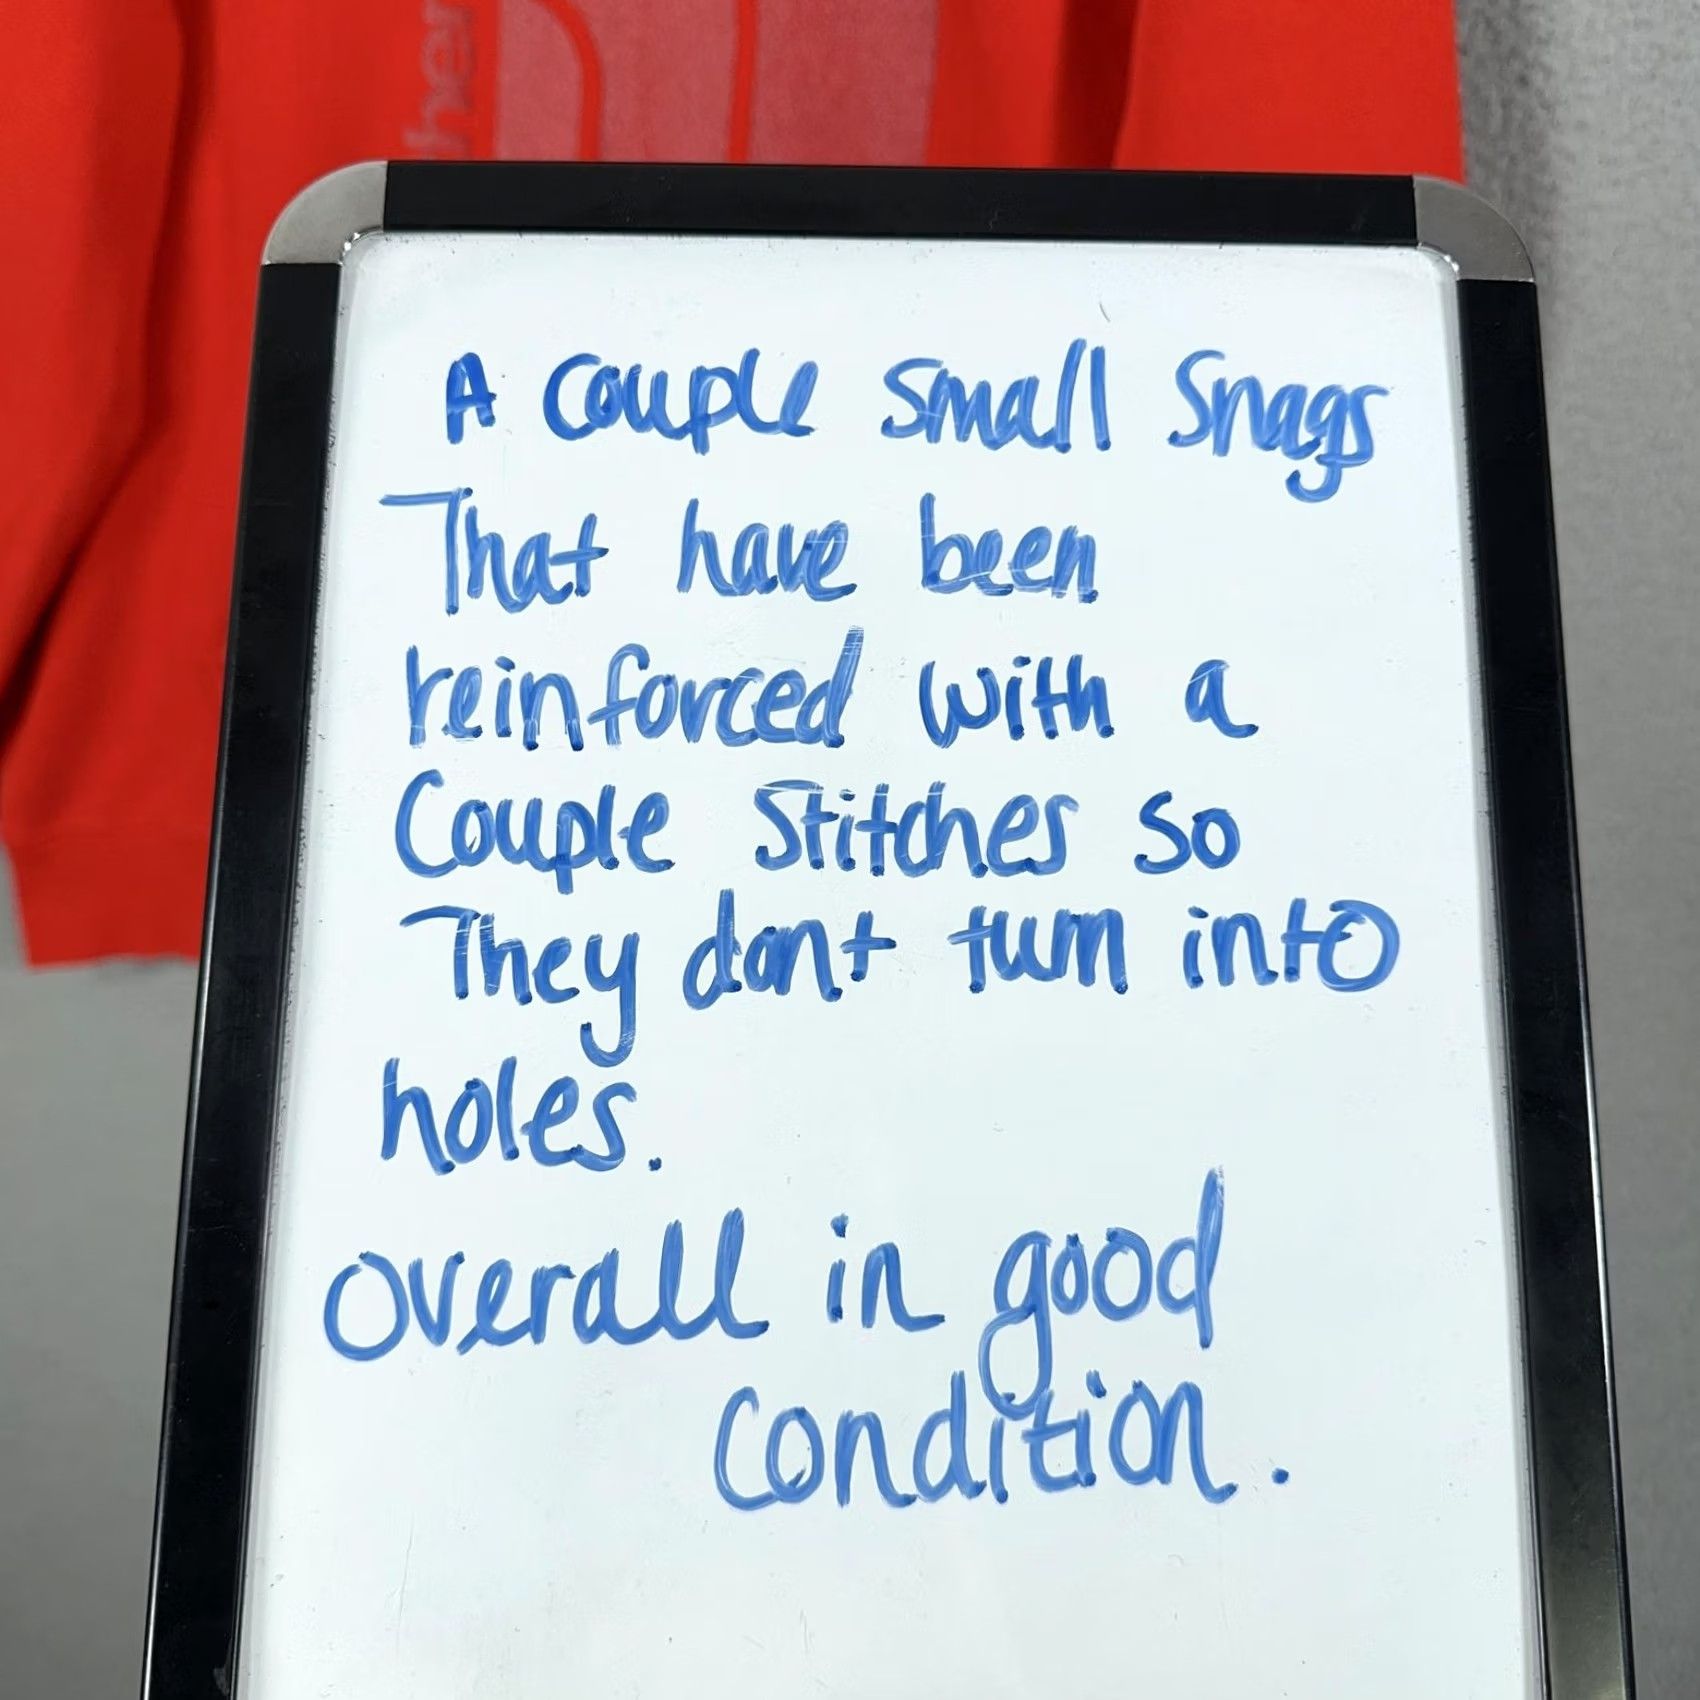 her
A Couple Small Snags
That have been
reinforced with a
Couple Stitches so
They dont turn into
holes.
Overall in good
Condition.